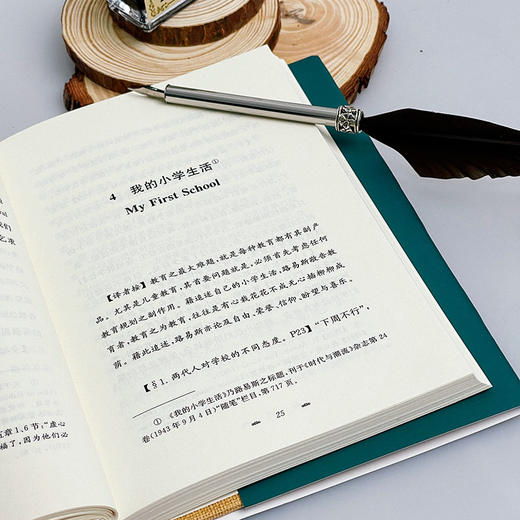 4 我的小学生活①
My First School
【译者按】教育之最大难题,就是每种教育都有其副产
品。尤其是儿童教育,其首要问题就是,必须首先考虑任何
教育规划之副作用。藉追述自己的小学生活,路易斯敬告教
育者,教育之为教育,往往是有心栽花花不成无心插柳柳成
荫。藉此追述,路易斯亦论及自由、荣誉、信仰、盼望与喜乐。
【§1.两代人对学校的不同态度。P23】“下周不行”,
① 《我的小学生活》乃路易斯之标题,刊于《时代与潮流》杂志第24
卷(1943年9月4日)“随笔”栏目,第717页。
25
章1、6节:“虚心
福了,因为他们必